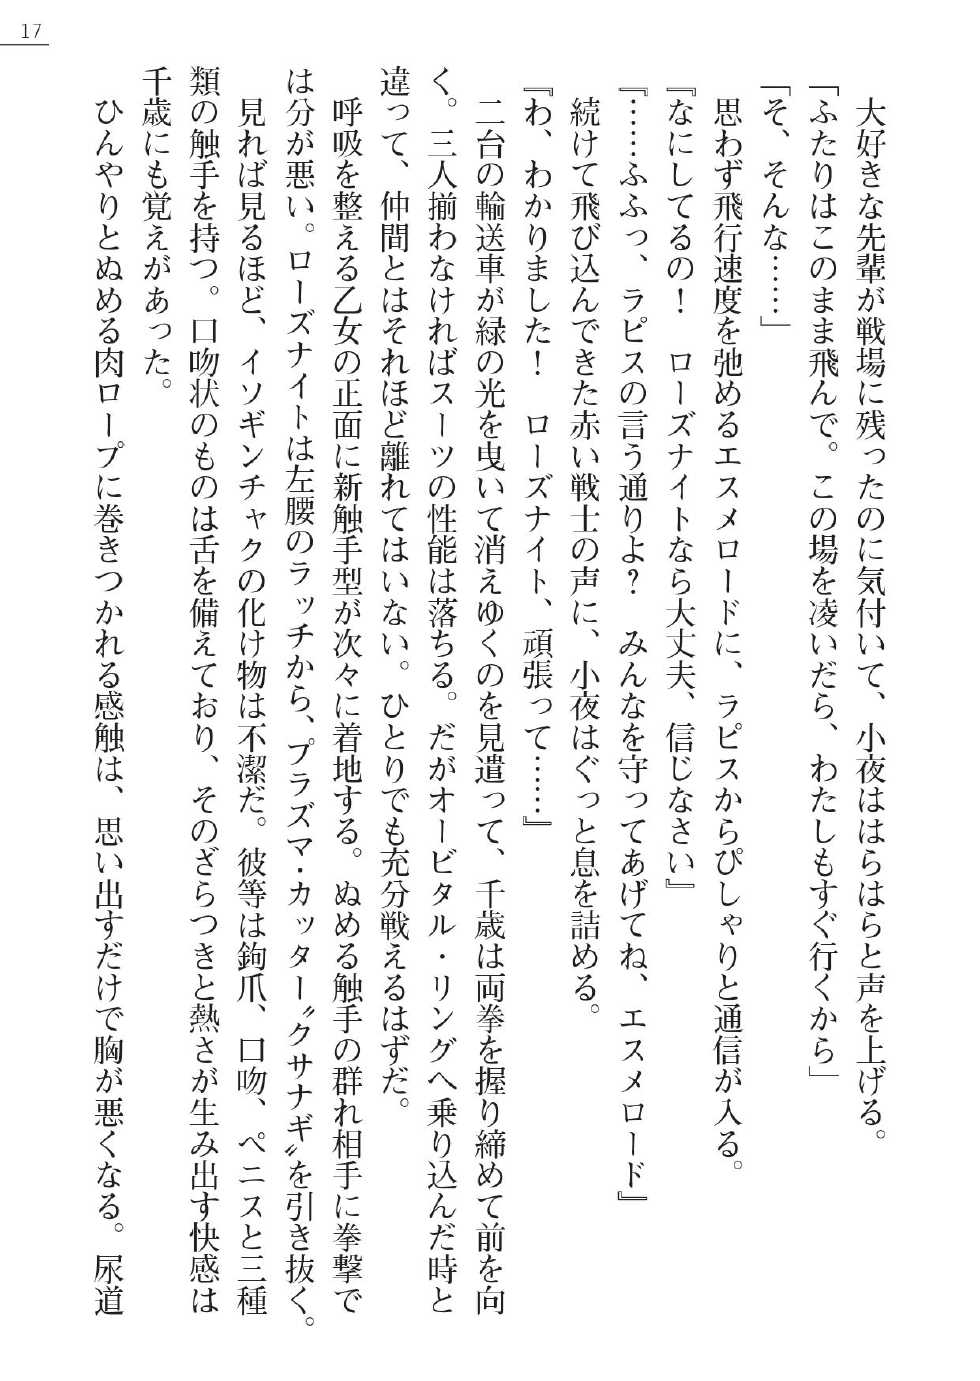 17
　大好きな先輩が戦場に残ったのに気付いて、小夜ははらはらと声を上げる。
「ふたりはこのまま飛んで。この場を凌いだら、わたしもすぐ行くから」
「そ、そんな……」
　思わず飛行速度を弛めるエスメロードに、ラピスからぴしゃりと通信が入る。
『なにしてるの！　ローズナイトなら大丈夫、信じなさい』
『……ふふっ、ラピスの言う通りよ？　みんなを守ってあげてね、エスメロード』
　続けて飛び込んできた赤い戦士の声に、小夜はぐっと息を詰める。
『わ、わかりました！　ローズナイト、頑張って……』
　二台の輸送車が緑の光を曳いて消えゆくのを見遣って、千歳は両拳を握り締めて前を向
く。三人揃わなければスーツの性能は落ちる。だがオービタル・リングへ乗り込んだ時と
違って、仲間とはそれほど離れてはいない。ひとりでも充分戦えるはずだ。
　呼吸を整える乙女の正面に新触手型が次々に着地する。ぬめる触手の群れ相手に拳撃で
は分が悪い。ローズナイトは左腰のラッチから、プラズマ・カッター〝クサナギ〟を引き抜く。
　見れば見るほど、イソギンチャクの化け物は不潔だ。彼等は鉤爪、口吻、ペニスと三種
類の触手を持つ。口吻状のものは舌を備えており、そのざらつきと熱さが生み出す快感は
千歳にも覚えがあった。
　ひんやりとぬめる肉ロープに巻きつかれる感触は、思い出すだけで胸が悪くなる。尿道